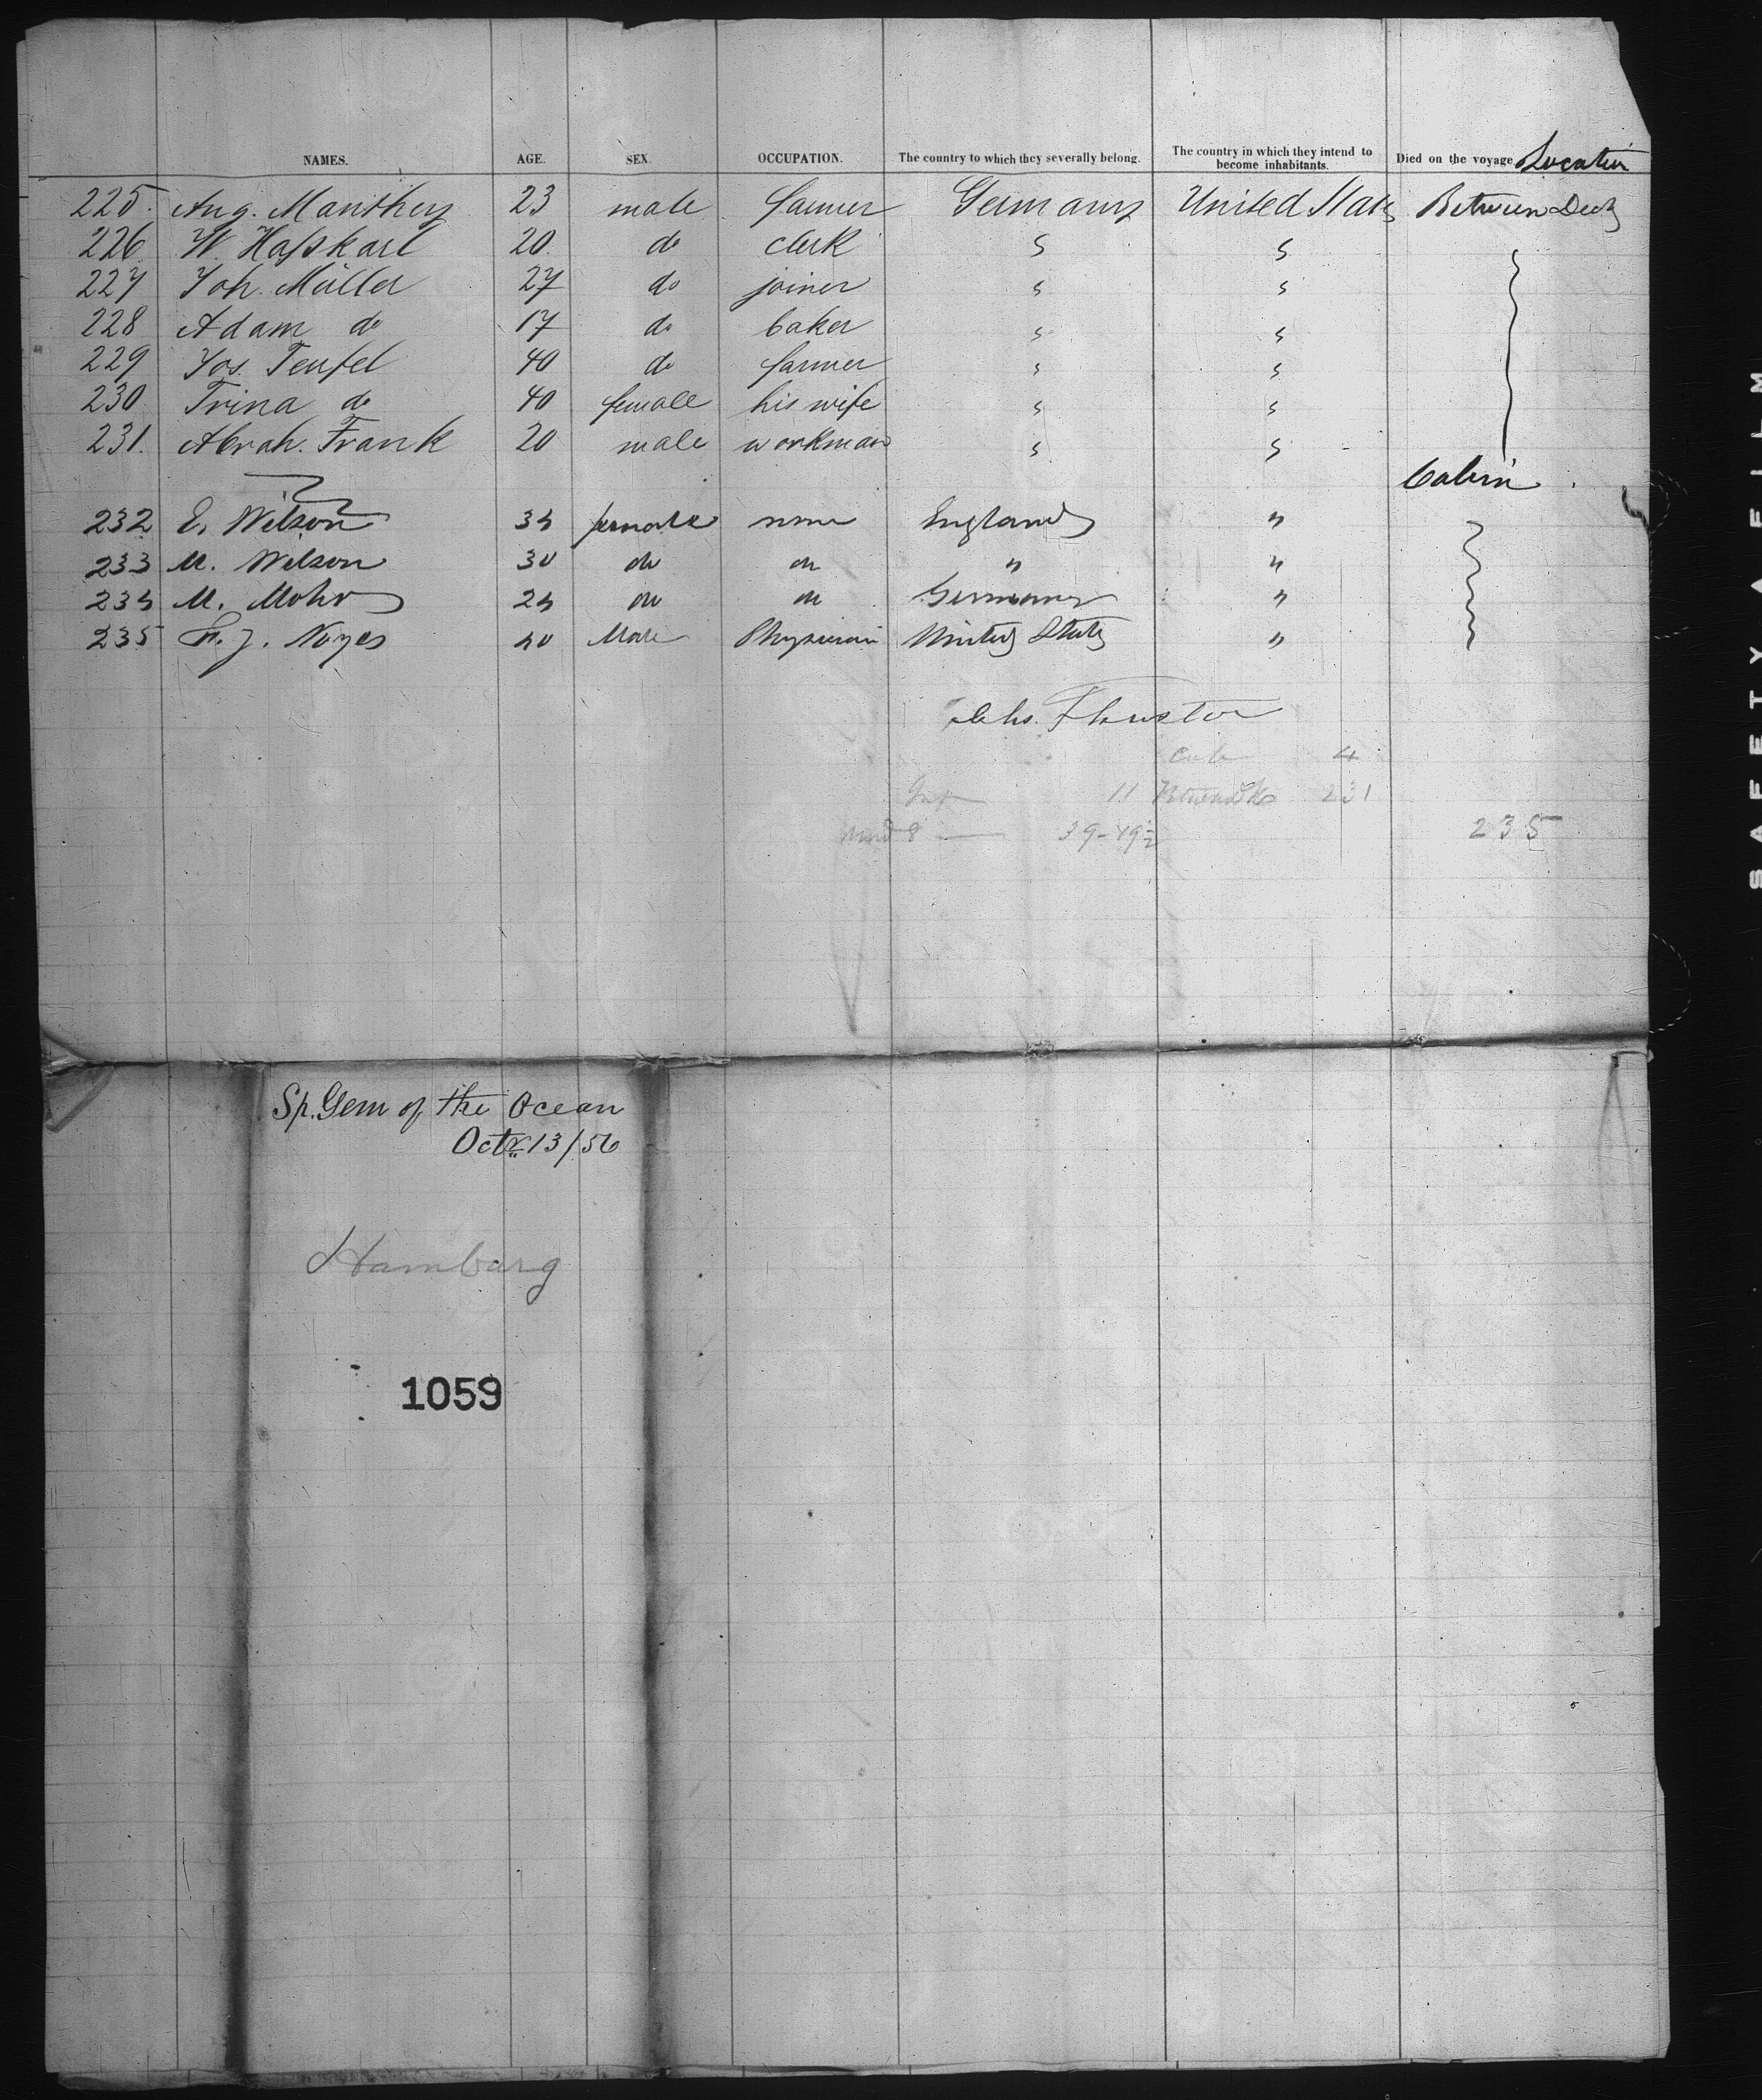 NAMES. AGE. SEX. OCCUPATION. The country to which they severally belong. The country in which they intend to become inhabitants. Died on the voyage Location
225. Aug. Manthey 23 male farmer Germany United States Between Deck
226 W. Hasskarl 20 do clerk " "
227 Joh. Müller 27 do joiner " "
228 Adam do 17 do baker " "
229 Jos. Teufel 40 do farmer " "
230 Trina do 40 female his wife " "
231. Abrah. Frank 20 male workman " "
Cabin
232 E. Wilson 34 female none England "
233 M. Wilson 30 do do " "
234 M. Mohr 24 do do Germany "
235 F. J. Noyes 40 Male Physician United States "
4
11 231
39-49½ 235
Sp. Gem of the Ocean
Octr. 13/56
Hamburg
1059
SAFETY FILM